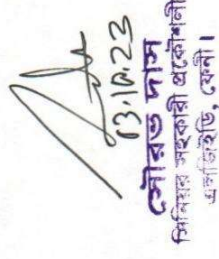 03.10.23
সৌরভ দাস
সিনিয়র সহকারী প্রকৌশলী
এলজিইডি, ফেনী।